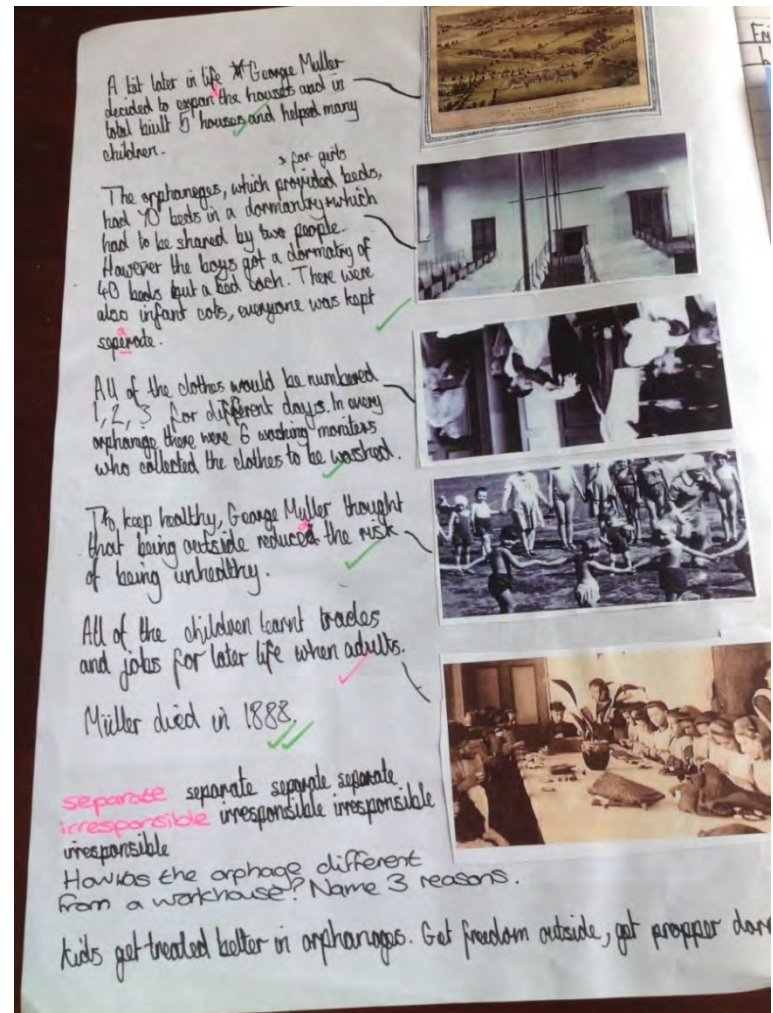 A bit later in life George Muller
decided to expan the houses and in
total biult 5 houses and helped many
children.
* for girls
The orphaneges, which provided beds,
had 70 beds in a dormantry * which
had to be shared by two people.
However the boys got a dormatry of
40 beds but a bed each. There were
also infant cots, everyone was kept
seperate.
a
All of the clothes would be numbered
1, 2, 3 for different days. In every
orphange there were 6 washing moniters
who collected the clothes to be washed.
To keep healthy, George Muller thought
that being outside reduced the risk
of being unhealthy.
All of the children learnt trades
and jobs for later life when adults.
Müller died in 1888.
separate separate separate separate
irresponsible irresponsible irresponsible
irresponsible
How was the orphage different
from a workhouse? Name 3 reasons.
kids get treated better in orphanages. Get freedom outside, get propper dor